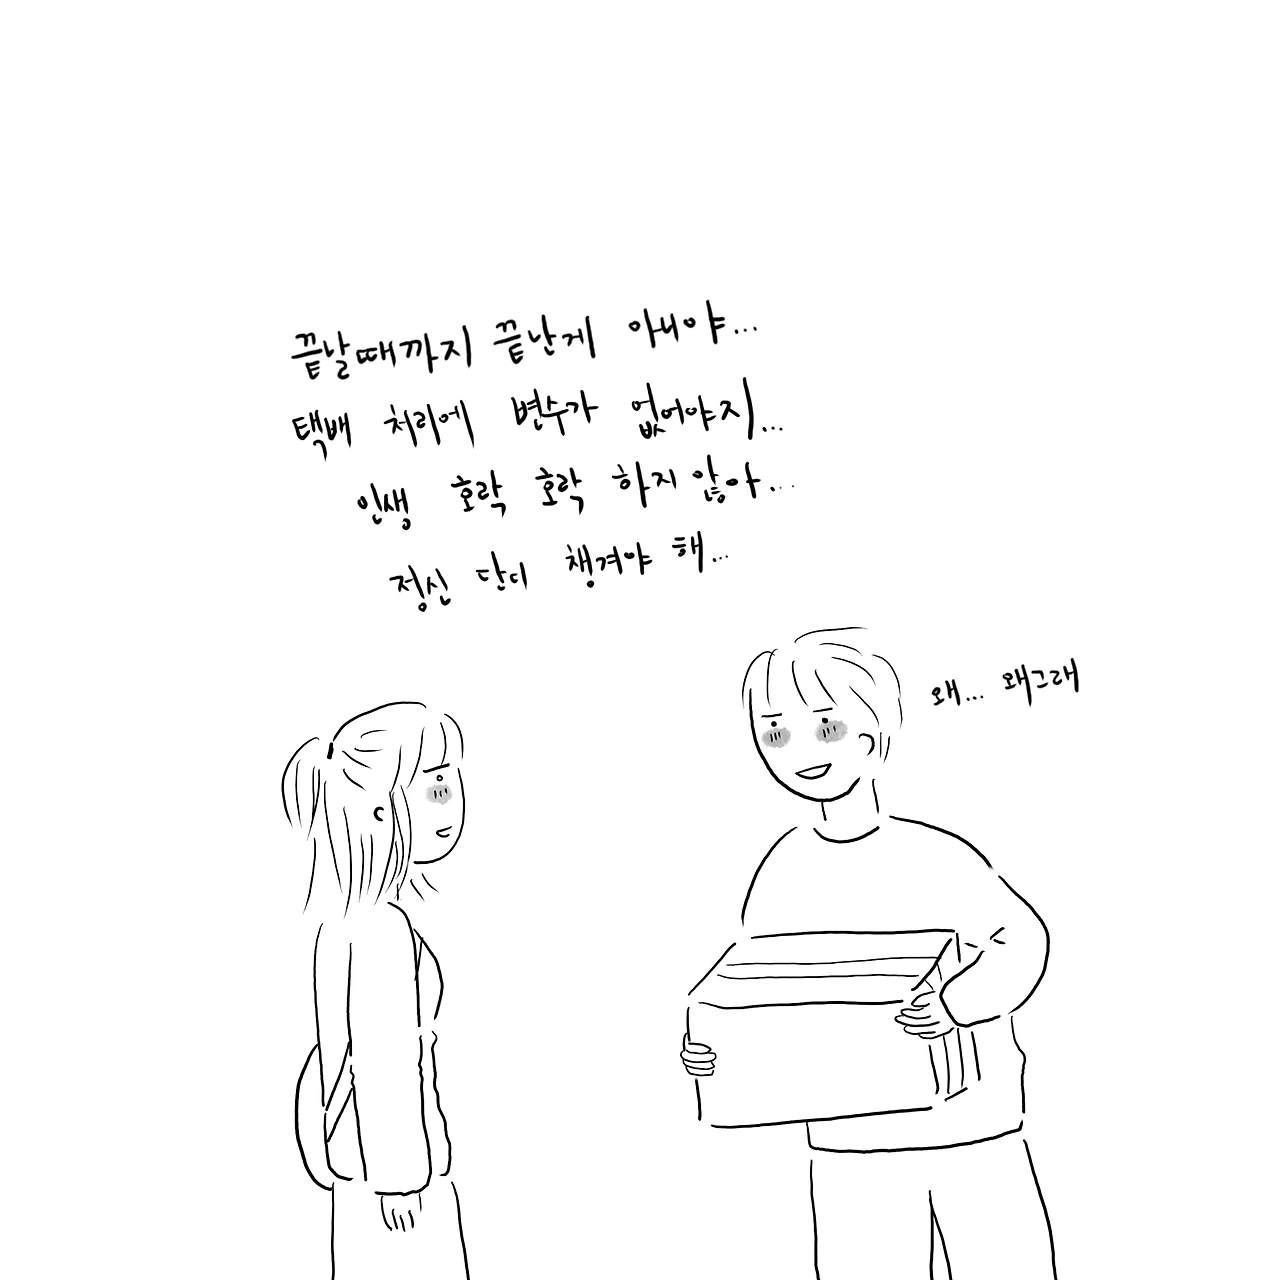 끝날때까지 끝난게 아니야...
택배 처리에 변수가 없어야지...
인생 호락 호락 하지 않아...
정신 단디 챙겨야 해...
왜... 왜그래